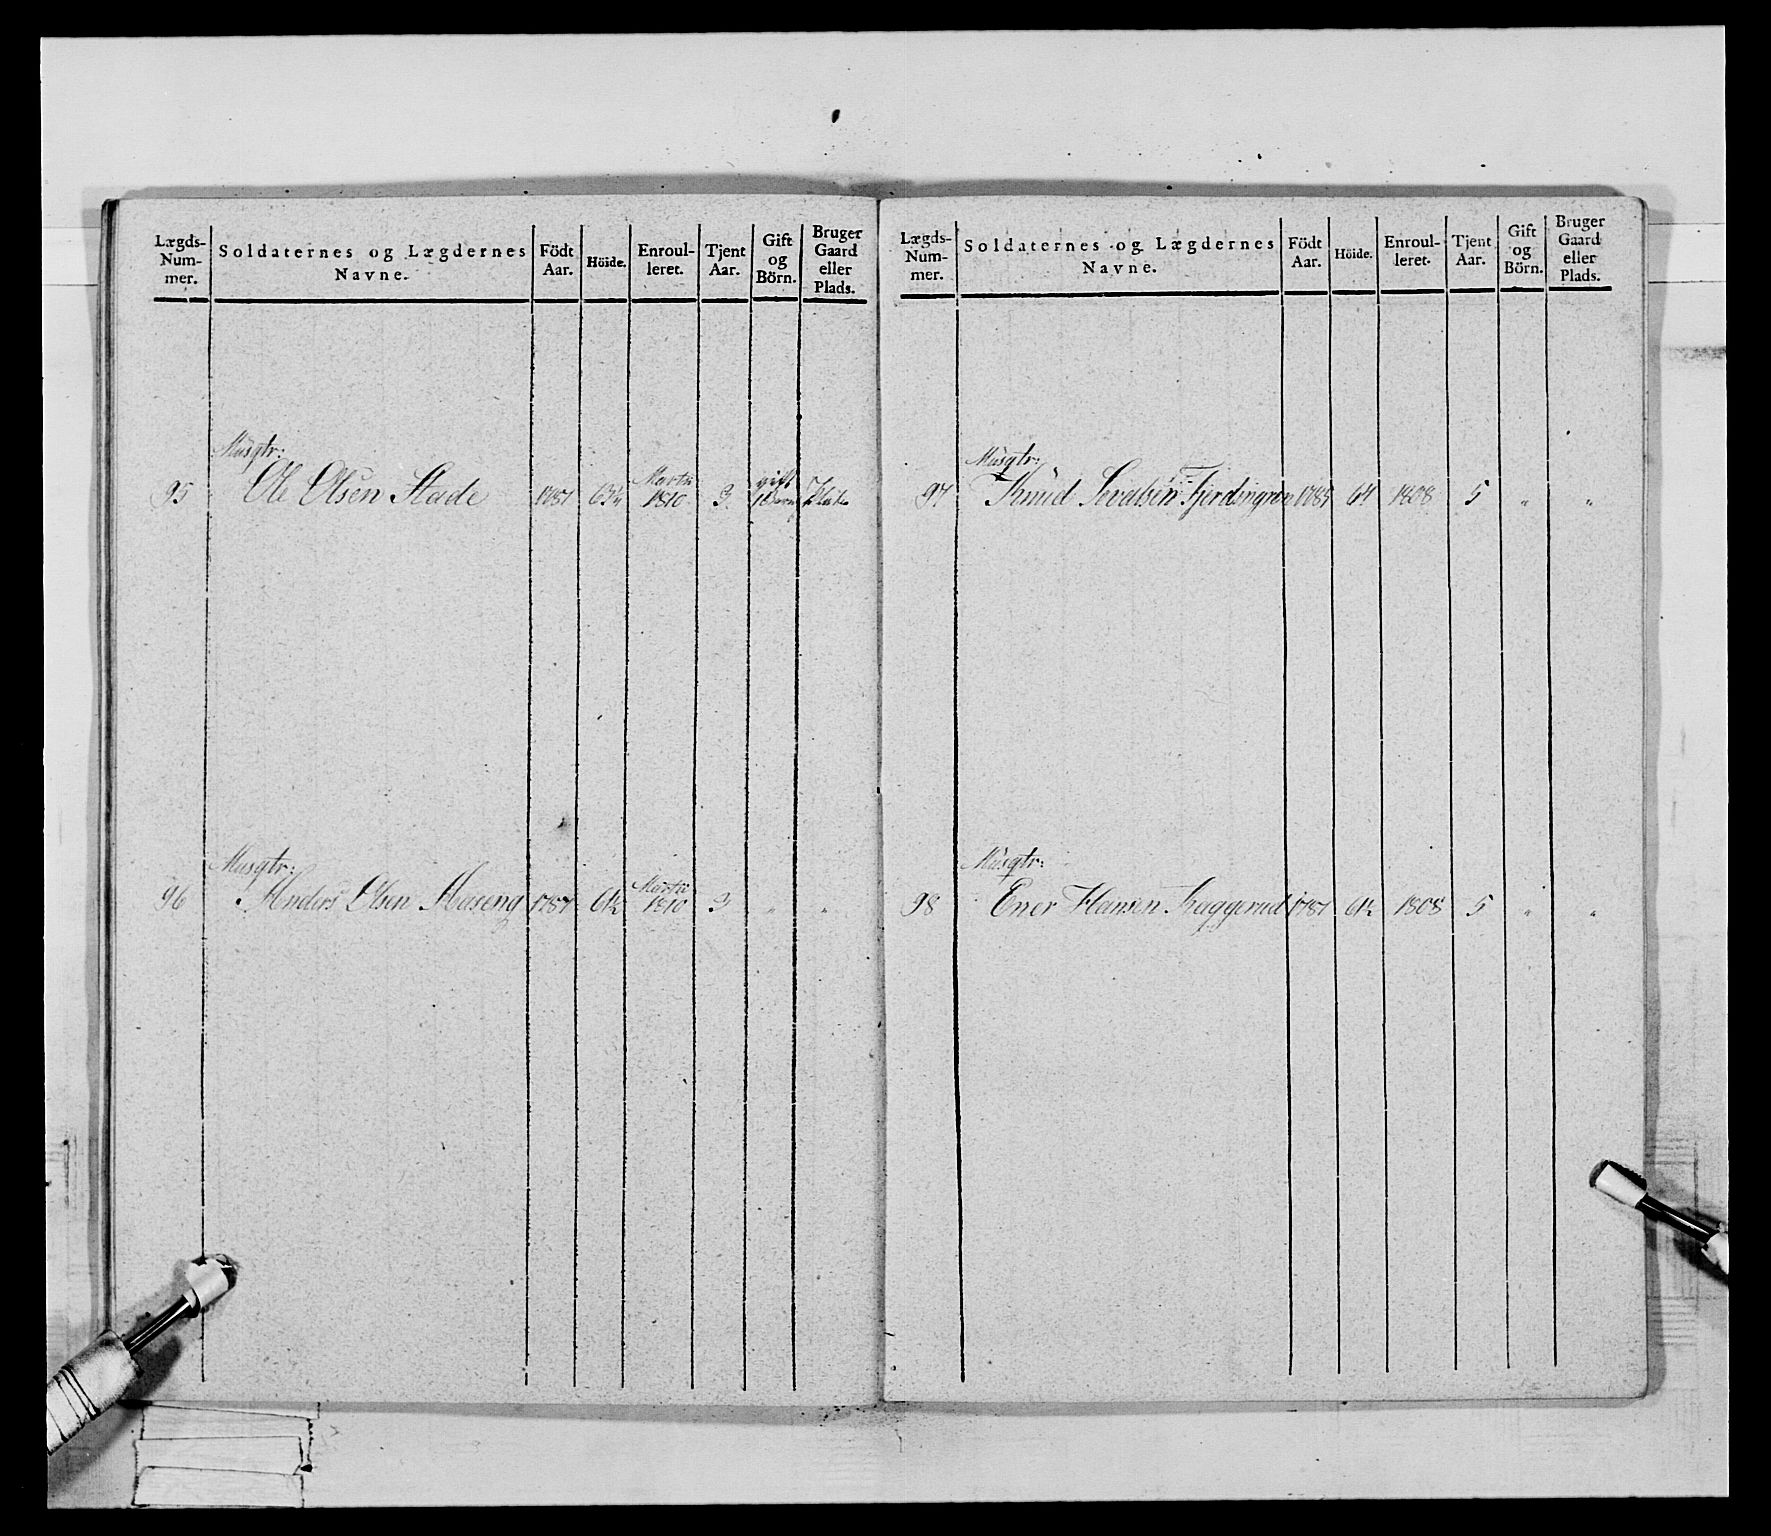 Lægds-Num-mer. Soldaternes og Lægdernes Navne. Födt Aar. Höide. Enroul-leret. Tjent Aar. Gift og Börn. Bruger Gaard eller Plads.
Musqtr:
95 Ole Olsen Stade 1787 63½ Martii 1810 3 gift 1 Barn Plads
Musqtr:
96 Anders Olsen Moseng 1787 61½ Martii 1810 3 " "
Lægds-Num-mer. Soldaternes og Lægdernes Navne. Födt Aar. Höide. Enroul-leret. Tjent Aar. Gift og Börn. Bruger Gaard eller Plads.
Musqtr:
97 Knud 1785 64 1808 5 " "
Musqtr:
98 Ener Hansen Kaggerud 1787 61½ 1808 5 " "